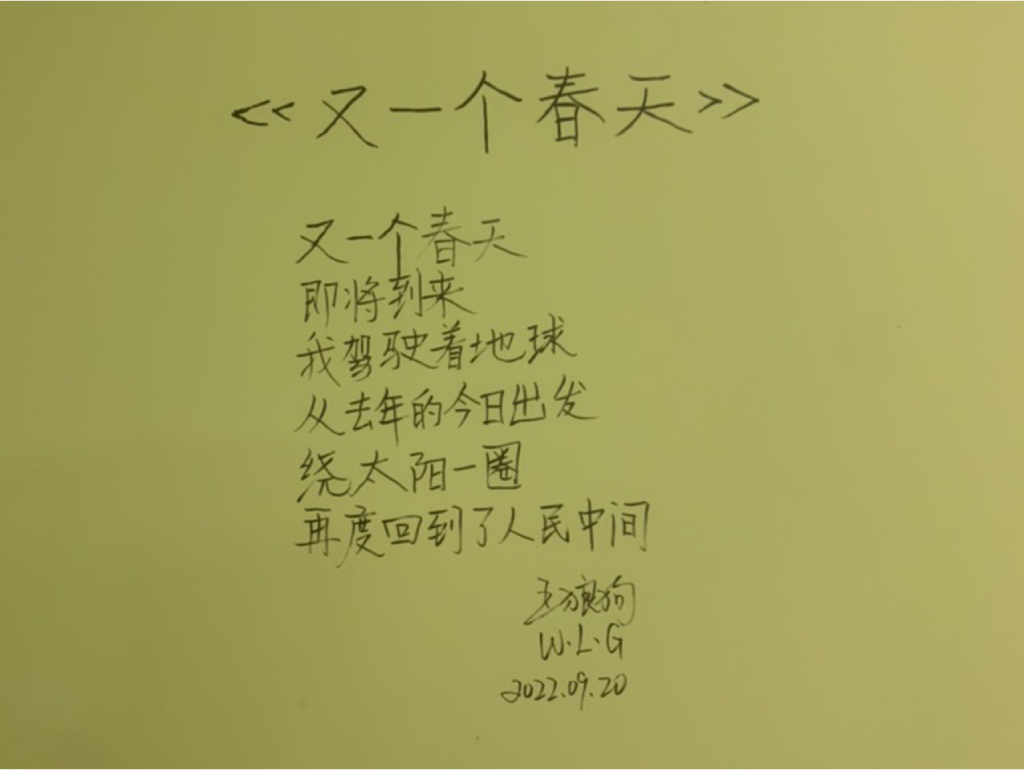 <<又一个春天>>
又一个春天
即将到来
我驾驶着地球
从去年的今日出发
绕太阳一圈
再度回到了人民中间
王狼狗
W.L.G
2022.09.20